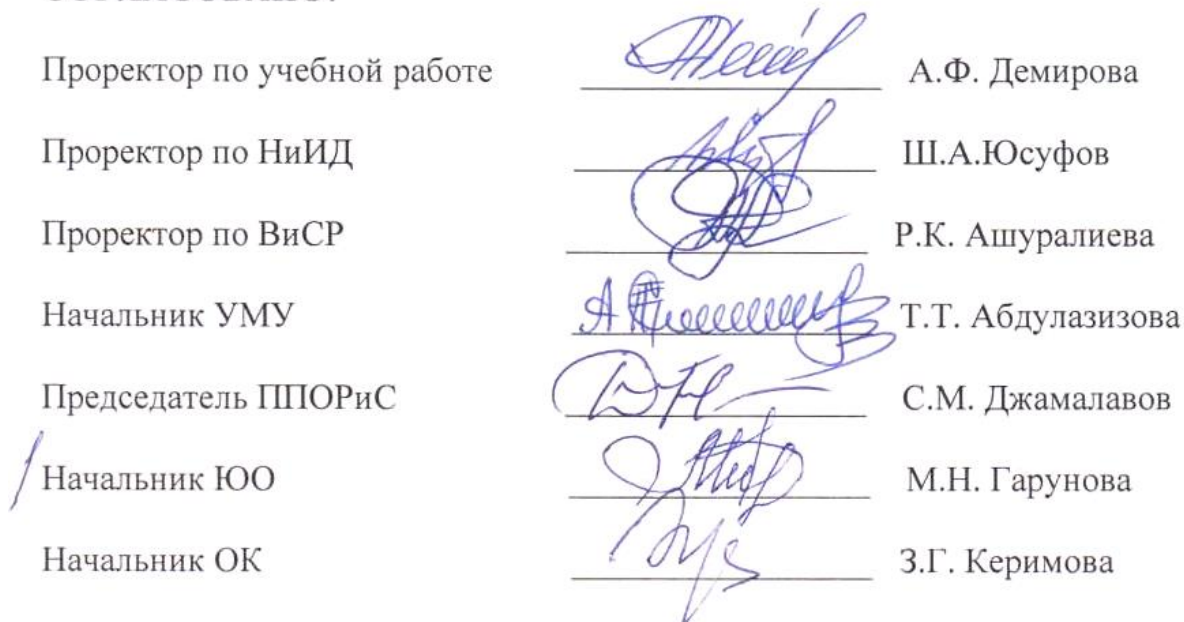 Проректор по учебной работе А.Ф. Демирова
Проректор по НиИД Ш.А.Юсуфов
Проректор по ВиСР Р.К. Ашуралиева
Начальник УМУ Т.Т. Абдулазизова
Председатель ППОРиС С.М. Джамалавов
Начальник ЮО М.Н. Гарунова
Начальник ОК З.Г. Керимова